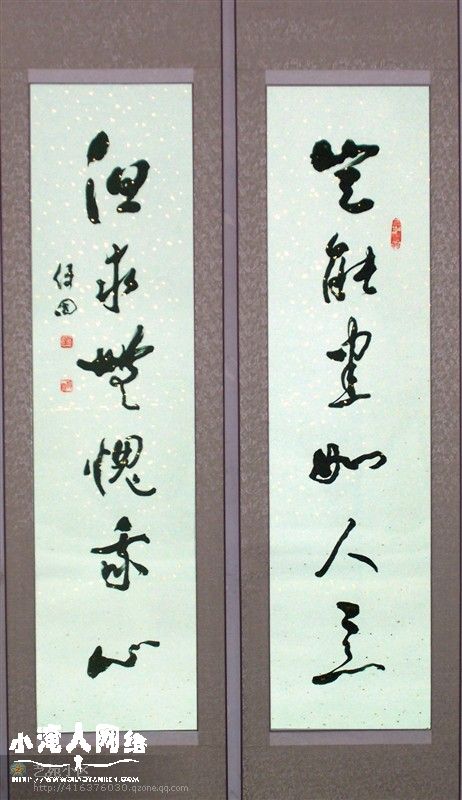 豈能盡如人意
但求無愧我心
小湾人网络
http://416376030.qzone.qq.com